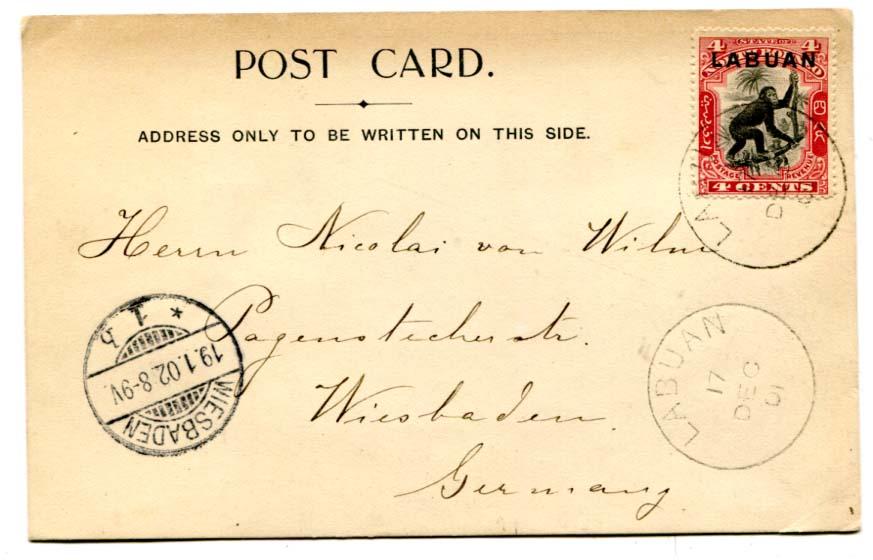 POST CARD.
ADDRESS ONLY TO BE WRITTEN ON THIS SIDE.
4 STATE OF 4
NORTH BORNEO
LABUAN
POSTAGE REVENUE
4 CENTS
LABUAN
Herrn Nicolai von
Pagenstecherstr.
Wiesbaden.
Germany.
LABUAN
17
DEC
01
WIESBADEN
19.1.02.8-9V.
* 1